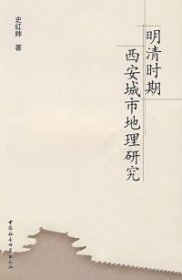 明清时期
西安城市地理研究
史红帅 著
中国社会科学出版社